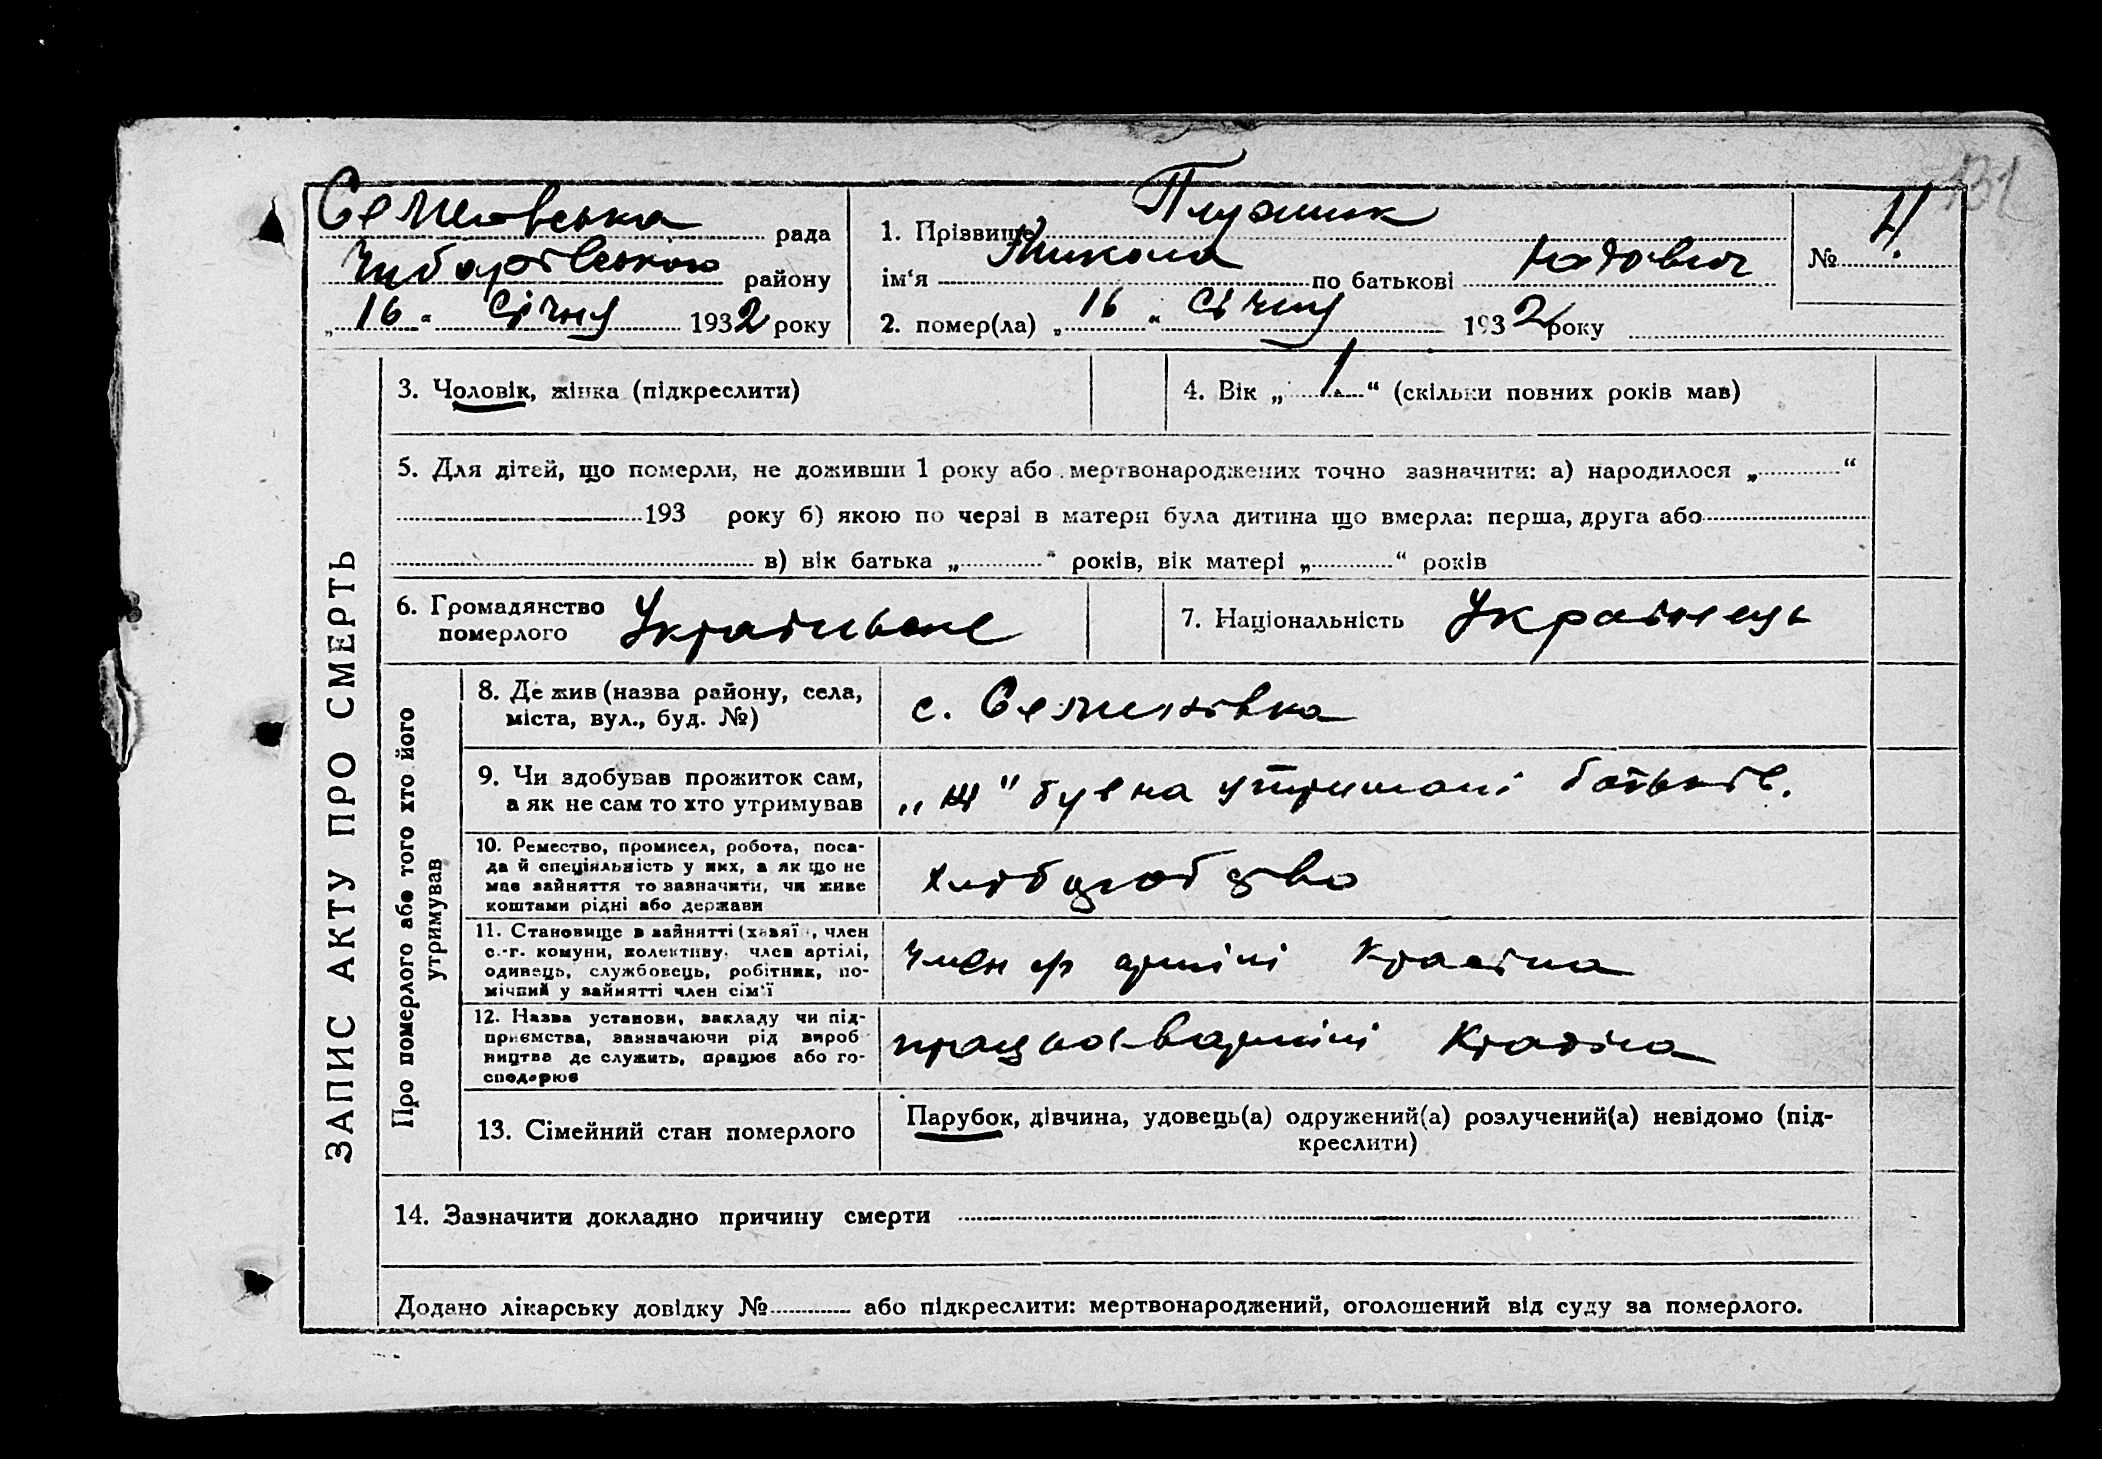 131
Семенівська рада
Чубарівського району
„ 16 “ Січня 1932 року
1. Прізвище Плужник
ім‘я Микола по батькові
№ 4
2. помер(ла) „ 16 “ Січня 1932 року
3. Чоловік, жінка (підкреслити)
4. Вік „ 1 “ (скільки повних років мав)
5. Для дітей, що померли, не доживши 1 року або мертвонароджених точно зазначити: а) народилося „ “
193 року б) якою по черзі в матери була дитина що вмерла: перша, друга або
в) вік батька „ “ років, вік матері „ “ років
6. Громадянство
померлого
Українське
7. Національність Українець
ЗАПИС АКТУ ПРО СМЕРТЬ
Про померлого або того хто його
утримував
8. Де жив (назва району, села,
міста, вул., буд. №)
с. Семенівка
9. Чи здобував прожиток сам,
а як не сам то хто утримував
був на утримані батьків.
10. Ремество, промисел, робота, поса-
да й спеціяльність у них, а як що не
має зайняття то зазначити, чи живе
коштами рідні або держави
хліборобство
11. Становище в зайнятті (хазяї , член
с.-г. комуни, колективу, член артілі,
одинець, службовець, робітник, по-
мічний у зайнятті член сім‘ї
член артілі Країна
12. Назва установи, закладу чи під-
приємства, зазначаючи рід вироб-
ництва де служить, працює або го-
сподарює
працює в артілі Країна
13. Сімейний стан померлого
Парубок, дівчина, удовець(а) одружений(а) розлучений(а) невідомо (під-
креслити)
14. Зазначити докладно причину смерти
Додано лікарську довідку № або підкреслити: мертвонароджений, оголошений від суду за померлого.